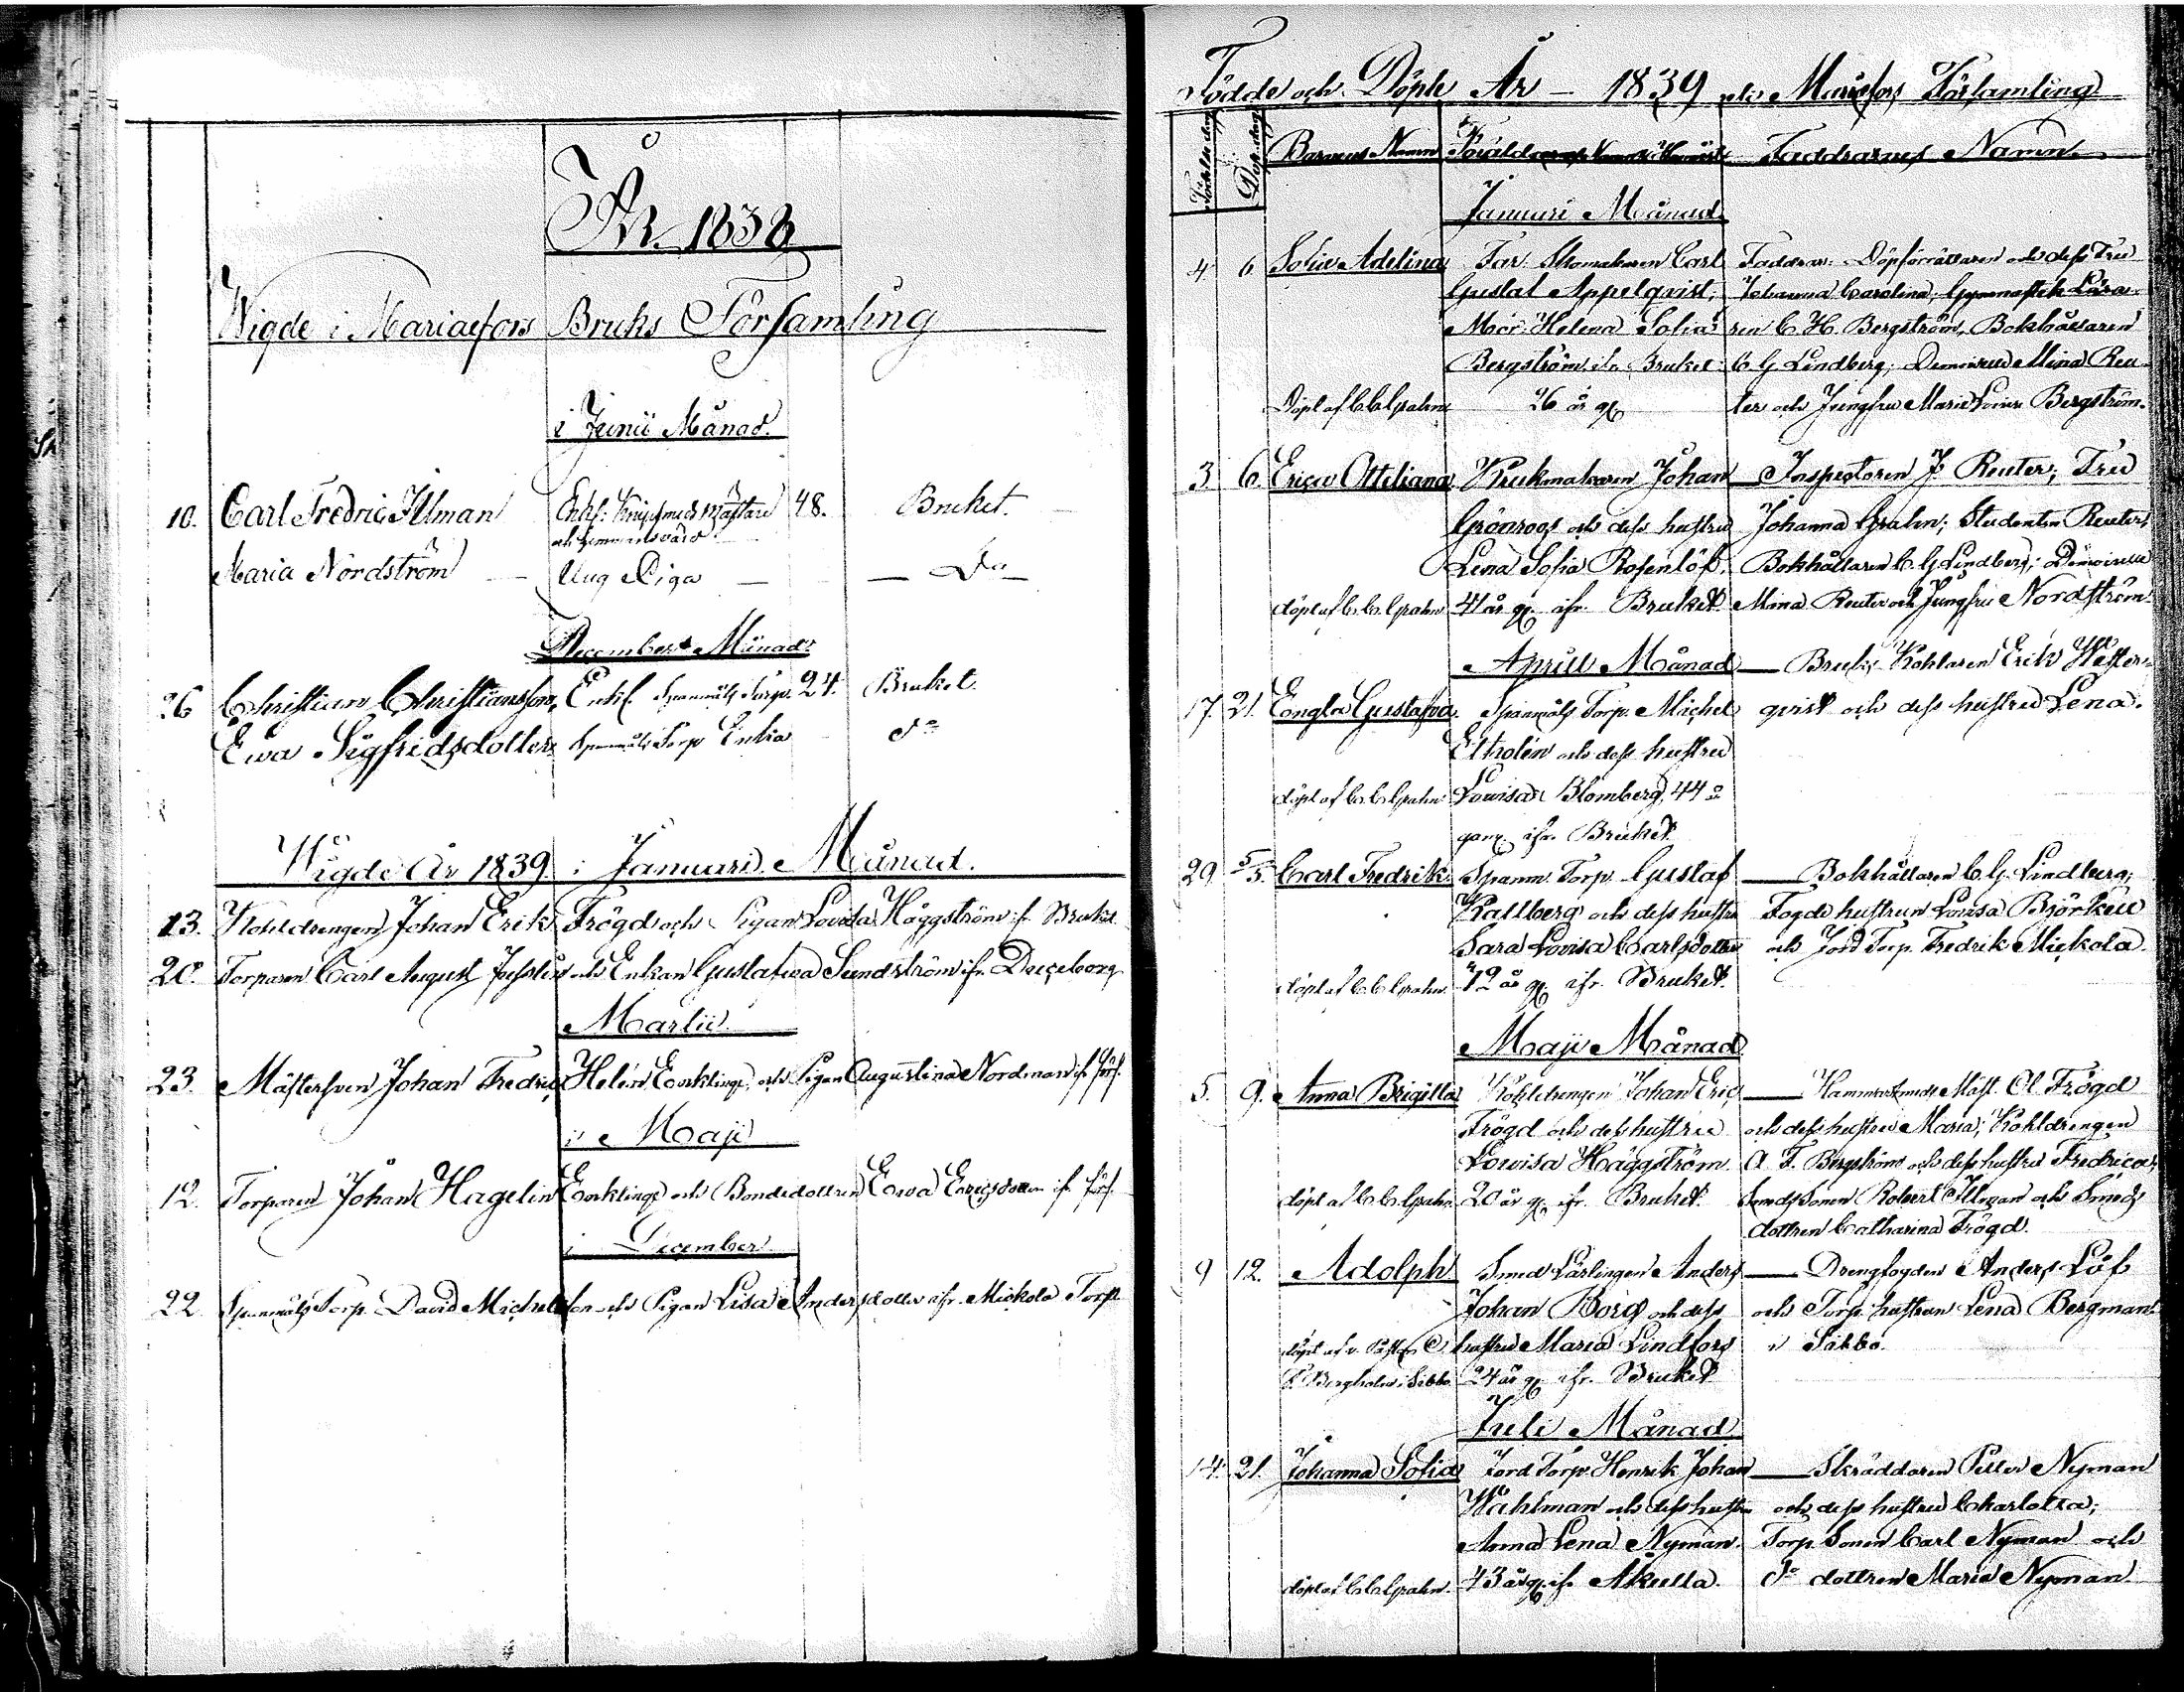 År 1838
Wigde i Mariaefors Bruks Församling
i Junii Månad.
10. Carl Fredric Illman Enkf: Knipsmeds Mästare 48. Bruket.
Maria Nordström Ung Piga Do
December Månad
26 Christian Christiansson, Enkf. Spanmåls Torp. 24. Bruket.
Ewa Sigfridsdotter Spanmåls Torp Enka do
Wigde År 1839 i Januari Månad.
13. Kohldrengen Johan Erik Frögd och Pigan Lovisa Häggström ifr. Bruket
20. Torparen Carl August och Enkan Gustafwa Sundström ifr.
Martii
23. Mästersven Johan Fredric Helén och Pigan Augustina Nordman if. förs.
i Maji
12. Torparen Johan Hagelin och Bondedottren Ewa Ericsdotter if. förs.
i December
22 Spanmåls Torp. David Michelsson och Pigan Lisa Andersdotter ifr. Mickola Torp.
Födde och Döpte År – 1839 uti Mariefors Församling
Födelse dag Döp. dag Barnens Namn Föräldrarnes Namn Faddrarnes Namn.
Januari Månad
4 6 Sofia Adelina Far: Skomakaren Carl Faddrar: Döpförrättaren och dess Fru
Gustaf Appelqvist, Johanna Carolina; Gymnastik Lära-
Mor: Helena Sofia ren C. H. Bergström, Bokhållaren
Bergström ifr. Bruket: C. G. Lindberg; Demoiselle Mina Reu-
Döpt af C C Grahn 26 år g. ter och Jungfru Maria Lovisa Bergström.
3. 6. Erica Ottiliana Krukmakaren Johan Inspectoren J. Reuter; Fru
Grönroos och dess hustru Johanna Grahn; Studenten Reuter,
Lena Sofia Rosenlöf, Bokhållaren C. G. Lindberg; Demoiselle
döpt af C. C. Grahn 41 år g. ifr. Bruket Mina Reuter och Jungfru Nordström.
April Månad Bruks Kohlaren Erik Wester-
17. 21. Engla Gustafva. Spanmåls Torp. Michel qvist och dess hustru Lena.
Etholén och dess hustru
döpt af C. C. Grahn Lovisa Blomberg, 44 år
gam. ifr. Bruket.
29 5/5. Carl Fredrik Spanm. Torp. Gustaf Bokhållaren C. G. Lindberg;
Kallberg och dess hustru Fogde hustrun Lovisa Björkell
Sara Lovisa Carlsdotter och Jord Torp. Fredrik Mickola.
döpt af C C Grahn 42 år g. ifr. Bruket.
Maji Månad
5. 9. Anna Brigitta Kohldrengen Johan Eric Hammarsmeds Mäst. Ol. Frögd
Frögd och dess hustru och dess hustru Maria; Kohldrengen
Lovisa Häggström A. F. Bergström och dess hustru Fredrica;
döpt af C. C. Grahn 20 år g. ifr. Bruket. Smeds Sonen Robert Illman och Smeds
dottren Catharina Frögd.
9 12. Adolph Smed Lärlingen Anders Drengfogden Anders Löf
Johan Borg och dess och Torp. hustrun Lena Bergman
döpt af v. Past. C. hustru Maria Lindfors i Sibbo.
Bergholm i Sibbo 24 år g. ifr. Bruket
Juli Månad
14. 21. Johanna Sofia Jord Torp. Henrik Johan Skräddaren Petter Nyman
Wahlman och dess hustru och dess hustru Charlotta;
Anna Lena Nyman. Torp. Sonen Carl Nyman och
döpt af C C Grahn 43 år g. ifr. Akulla. do dottren Maria Nyman.